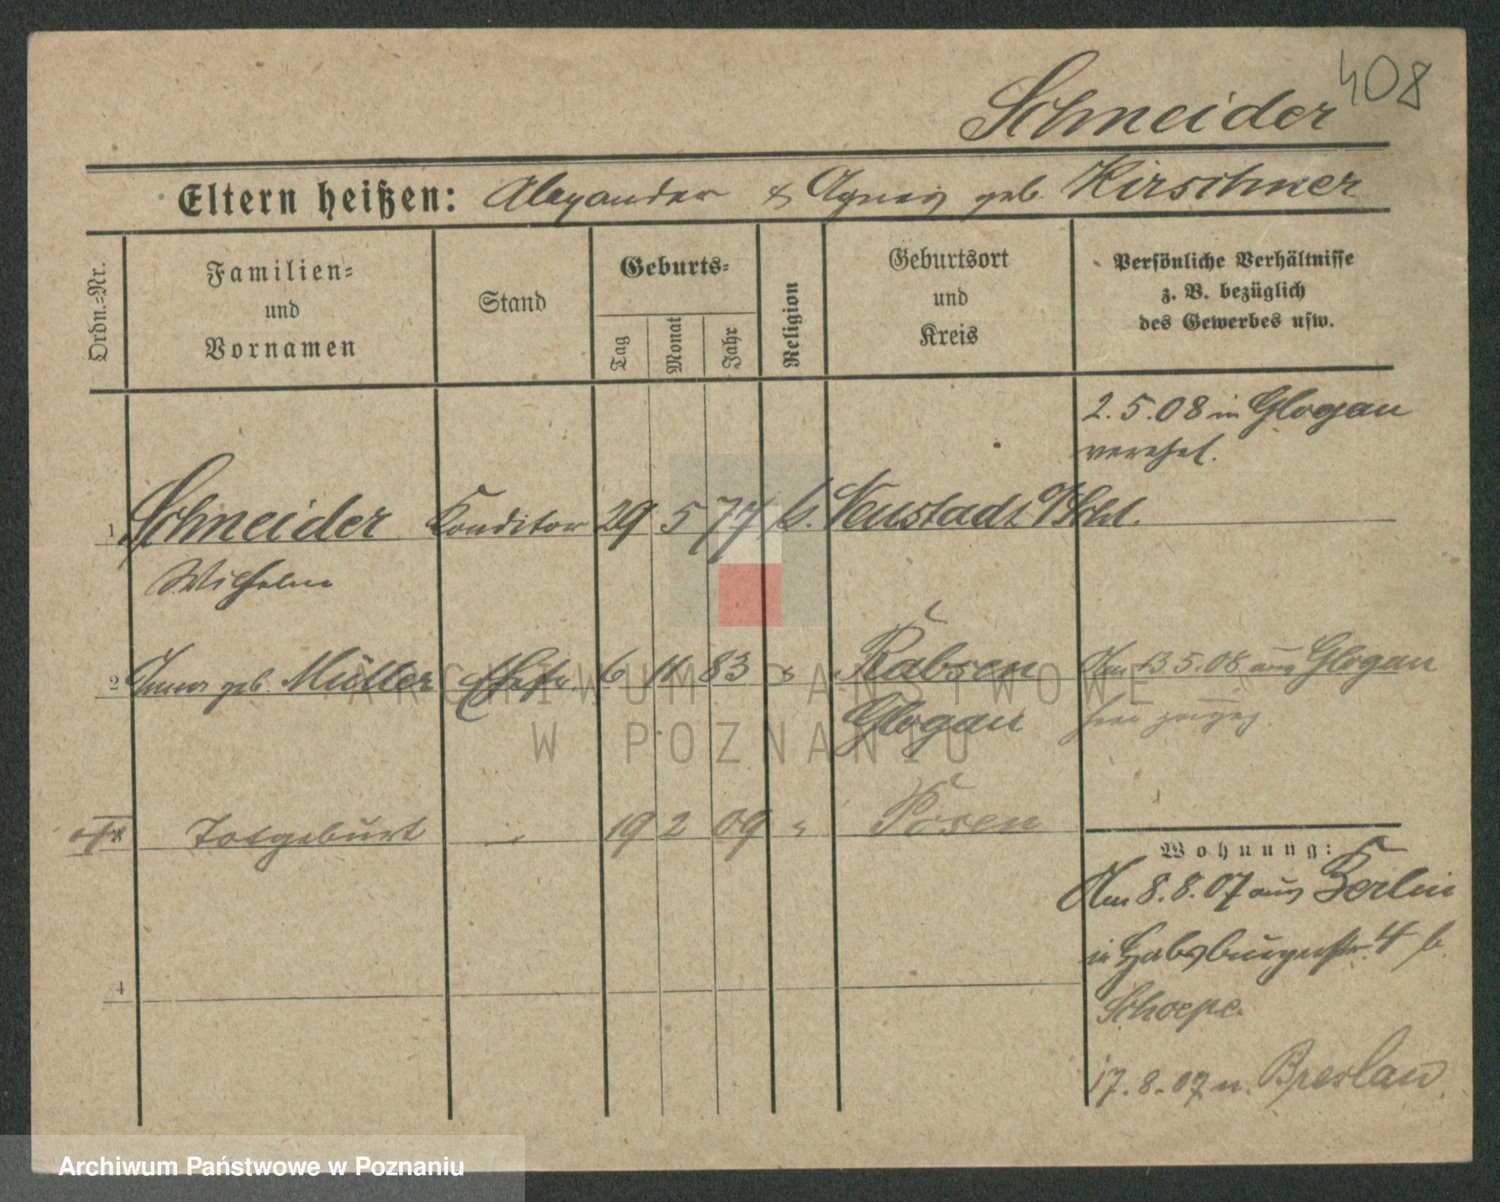 408
Schneider
Eltern heißen: Alexander & Agnes geb. Kirschner
Ordn.-Nr.
Familien-
und
Vornamen
Stand
Geburts-
Tag
Monat
Jahr
Religion
Geburtsort
und
Kreis
Persönliche Verhältnisse
z. B. bezüglich
des Gewerbes usw.
2.5.08 in Glogau
verehel.
1 Schneider Konditor 29 5 77 k. Neustadt O/Schl.
Wilhelm
2 Anna geb. Müller Ehefr. 6 11 83 " Rabsen Am 13.5.08 aus Glogau
Glogau hier zugez.
Totgeburt - 19 2 09 " Posen
Wohnung:
Am 8.8.07 aus Berlin
in Habsburgerstr. 4 b.
Schoepe
17.8.07 n. Breslau
4
ARCHIWUM PAŃSTWOWE
W POZNANIU
Archiwum Państwowe w Poznaniu